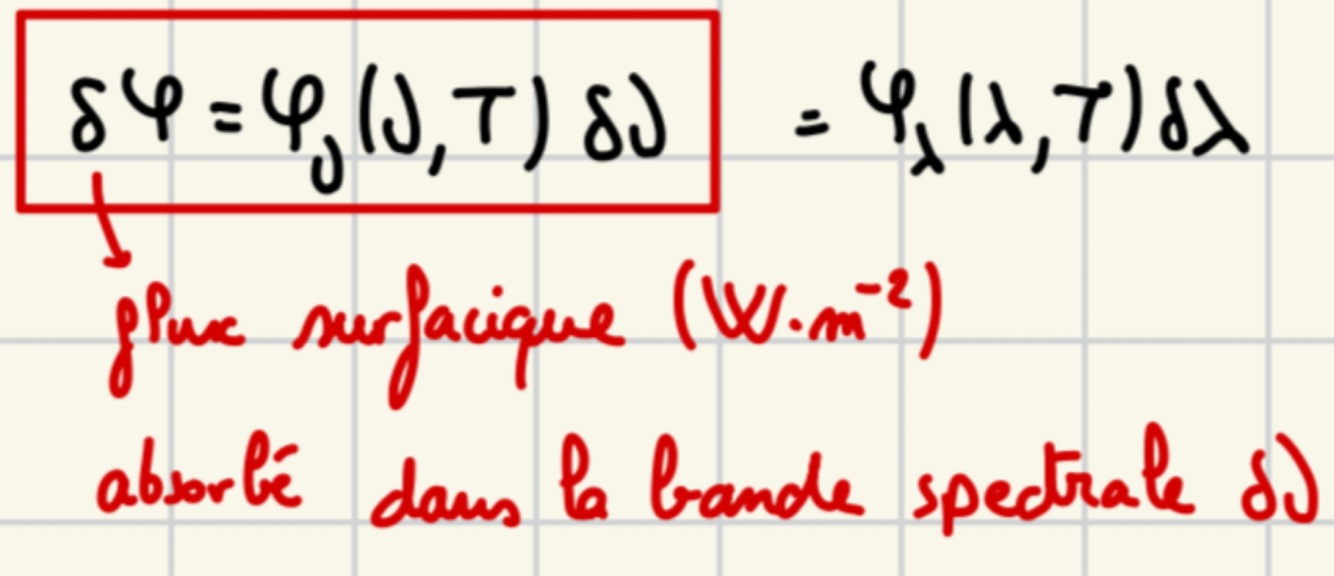 δφ = φ_ν(ν, T) δν = φ_λ(λ, T) δλ
flux surfacique (W·m⁻²)
absorbé dans la bande spectrale δν